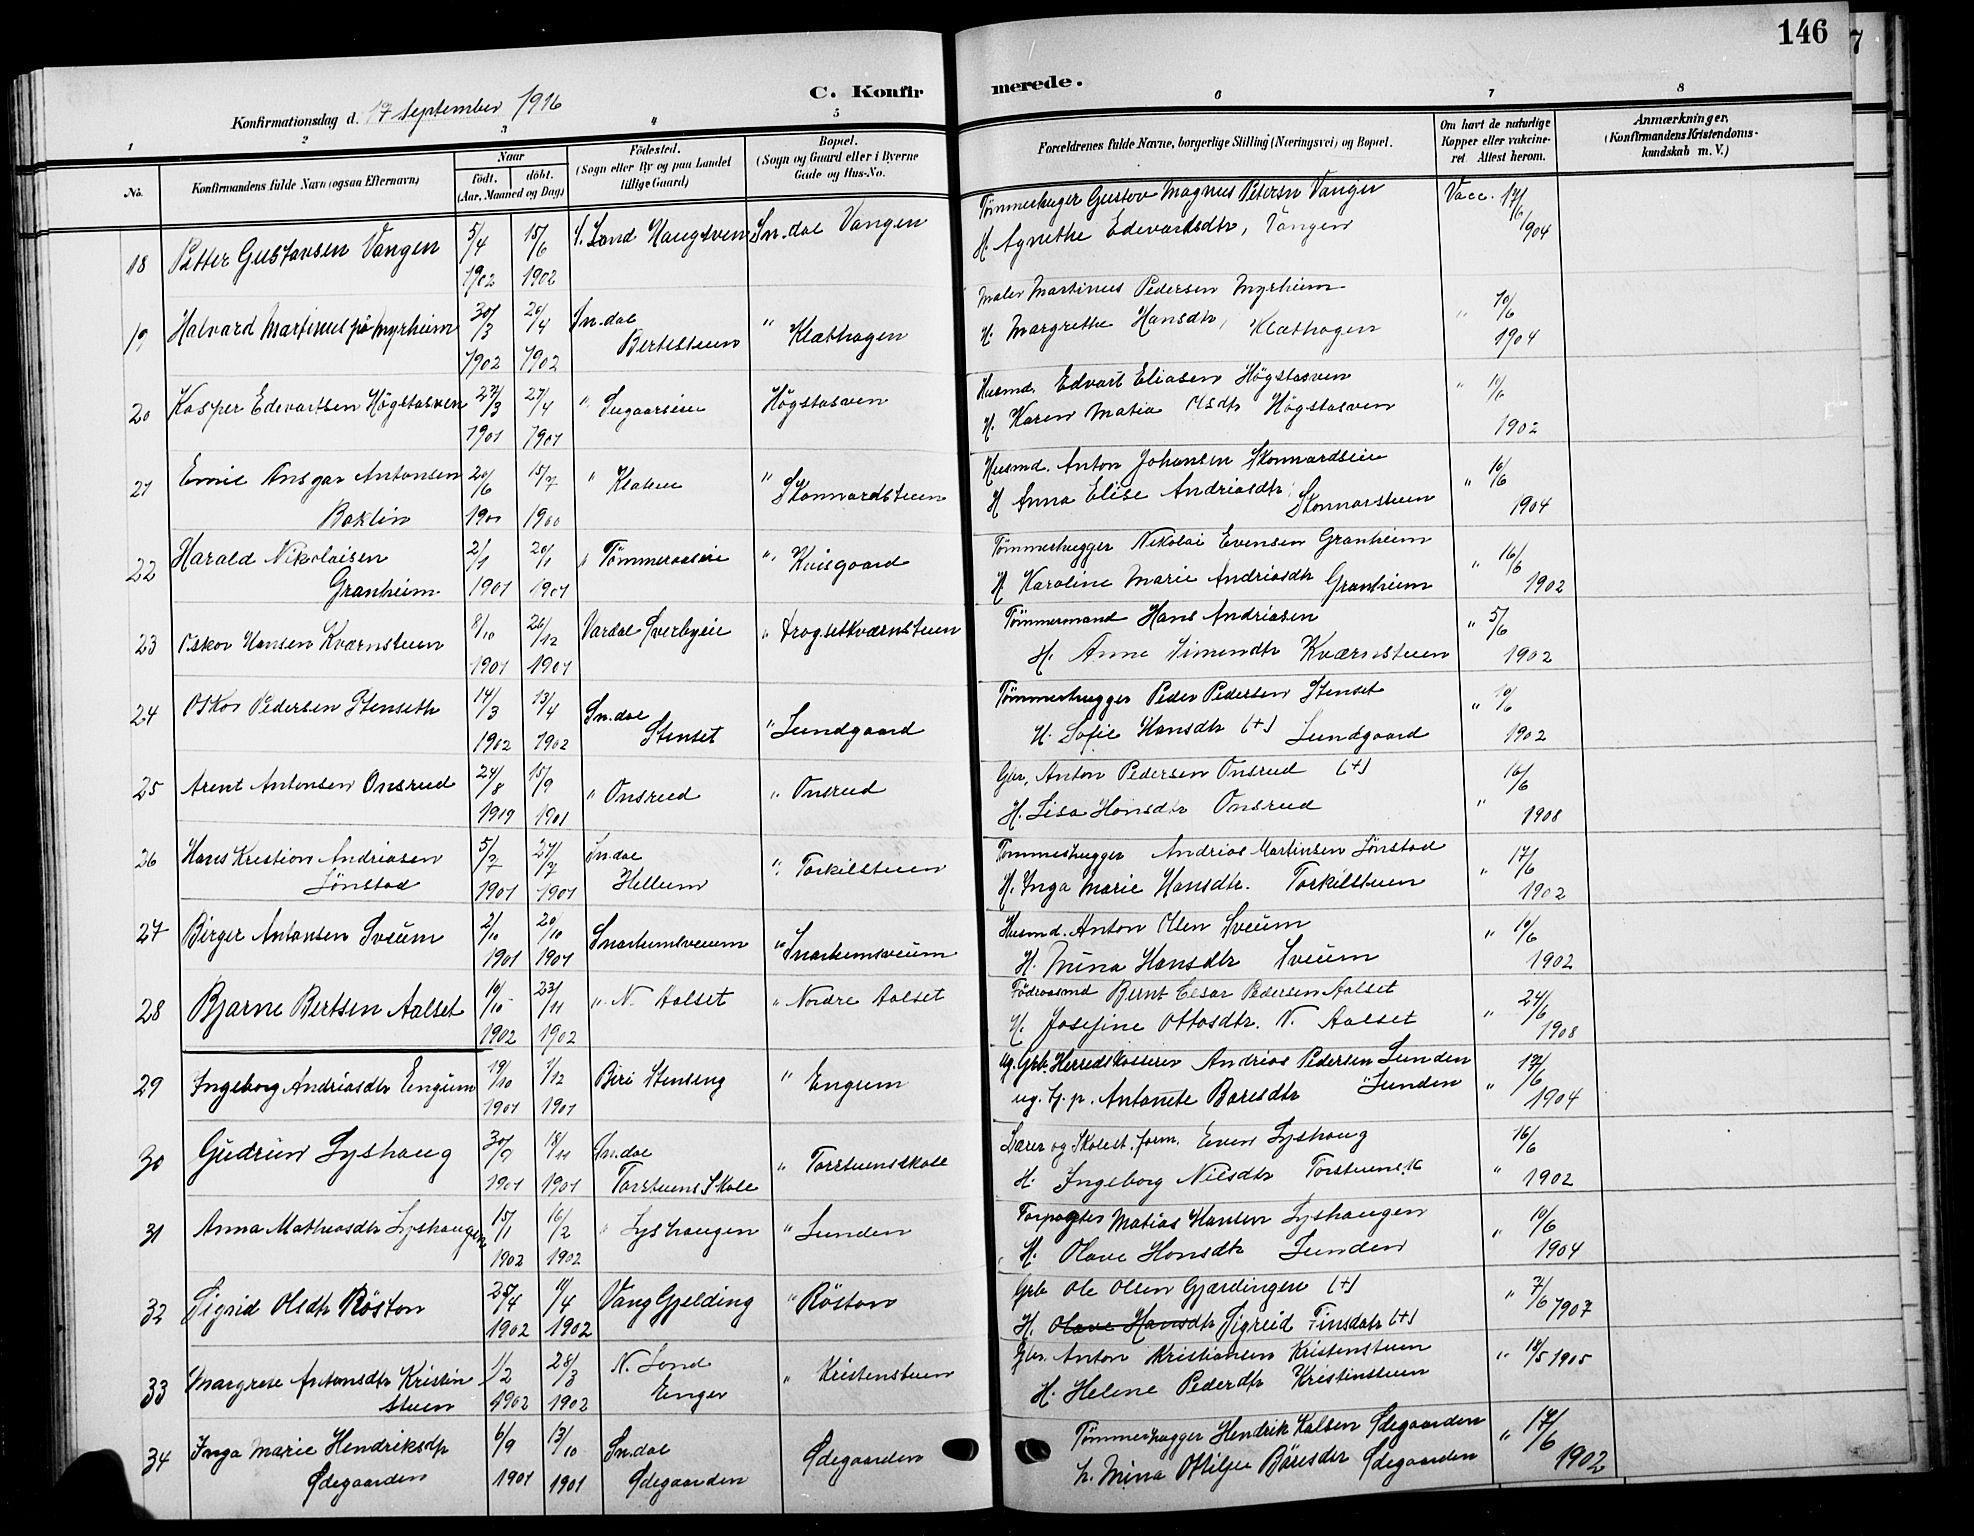 146
7
C. Konfirmerede.
Konfirmationsdag d. 17 September 1916
1 2 3 4 5 6 7 8
No.
Konfirmandens fulde Navn (ogsaa Efternavn)
Naar
født. døbt.
(Aar, Maaned og Dag)
Fødested.
(Sogn eller By og paa Landet
tillige Gaard)
Bopæl.
(Sogn og Gaard eller i Byerne
Gade og Hus-No.
Forældrenes fulde Navne, borgerlige Stilling (Næringsvei) og Bopæl.
Om havt de naturlige
Kopper eller vakcine-
ret. Attest herom.
Anmærkninger,
(Konfirmandens Kristendoms-
kundskab m. V.)
18 Petter Gustavsen Vangen 5/4 1902 15/6 1902 S. Land Sn.dal Vangen
Tømmerhuger Gustav Magnus Petersn Vangen
H. Agnethe Edevardsdtr, Vangen
Vacc. 17/6 1904
19 Halvard Martinus Myrheim 30/3 1902 20/4 1902 Sn.dal Bertelstuen " Klæthagen
Maler Martinus Pedersen Myrheim
H. Margrethe Hansdtr, Klæthagen
" 10/6 1904
20 Kasper Edevartsen Høgstasven 1901 27/4 1901 " Høgstasven
Husmd. Edvart Eliasen Høgstasven
H. Karen Matia Olsdtr Høgstasven
" 1902
21 Emil Ansgar Antonsen 20/6 1900 15/7 1900 " " Skonnardstuen
Baklin
Husmd. Anton Johansen Skonnardseie
H Anna Elise Andriasdtr Skonnarstuen
" 16/6 1904
22 Harald Nikolaisen 2/1 1901 20/1 1901 " Tømmeraaseie "
Granheim
Tømmerhugger Nikolai Evensen Granheim
H Karoline Marie Andriasdtr Granheim
" 16/6 1902
23 Oskar Hansen Kværnstuen 8/10 1901 26/12 1901 Vardal Sverbyeie " Drogsetkværnstuen
Tømmermand Hans Andriasen
H. Anne Simendtr Kværnstuen
" 5/6 1902
24 Oskar Pedersen Stenseth 14/3 1902 13/4 1902 Sn.dal Stenset " Lundgaard
Tømmerhugger Peder Pedersen Stenset
H. Sofie Hansdtr (+) Lundgaard
" 10/6 1902
25 Arent Antonsen Onsrud 24/8 15/9 1901 " Onsrud " Onsrud
Gbr. Anton Pedersen Onsrud (+)
H. Lisa Hansdtr Onsrud
" 16/6 1908
26 Hans Kristian Andriasen 5/7 1901 27/7 1901 Sn.dal Hellum " Torkilstuen
Lønstad
Tømmerhugger Andrias Martinsen Lønstad
H. Inga Marie Hansdtr. Torkilstuen
" 17/6 1902
27 Birger Antonsen Sveum 2/10 1901 20/10 1901 Snartumsveum " Snartumsveum
Husmd. Anton Olsen Sveum
H. Mina Hansdtr Sveum
" 10/6 1902
28 Bjarne Berntsen Aalset 10/10 1902 23/11 1902 " N. Aalset " Nordre Aalset
Føderaadsmd Bernt Cesar Pedersen Aalset
H. Josefine Ottosdtr. N. Aalset
" 24/6 1908
29 Ingeborg Andriasdtr Engum 19/10 1901 1/12 1901 Biri Stenseng " Engum
ug. Gbr. Herredskasserer Andrias Pedersen Lunden
ug. tj. p. Antonette Baresdtr " Lunden
" 17/6 1904
30 Gudrun Lyshaug 30/9 1901 18/11 1901 Sn.dal Torstuens Skole " Torstuenskole
Lærer og Skolest. form. Even Lyshaug
H. Ingeborg Nilsdtr Torstuensk
" 16/6 1902
31 Anna Mathiasdtr Lyshaugen 15/1 1902 16/2 1902 " Lyshaugen " Lunden
Forpagter Matias Hansen Lyshaugen
H. Olave Hansdtr Lunden
" 10/6 1904
32 Sigrid Olsdtr Røston 25/4 1902 1902 Vang Gjelding " Røston
Gbr Ole Olsen Gjærdingen (+)
H. Olave Hansdtr Sigrid Finsdatr (+)
" 7/6 1907
33 Margrete Antonsdtr Kristin 1/2 1902 28/3 1902 N. Land Enger " Kristenstuen
stuen
Gbr. Anton Kristiansen Kristenstuen
H. Helene Pederdtr Kristinstuen
" 18/5 1905
34 Inga Marie Hendriksdtr 6/9 1901 13/10 1901 Sn.dal Ødegaarden Ødegaarden
Ødegaarden
Tømmerhugger Hendrik Kalsen Ødegaarden
h. Mina Otilje Børesdtr Ødegaarden
" 17/6 1902